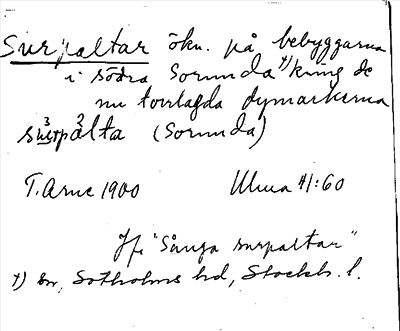 Surpaltar ökn. på bebyggarna
i södra Sorunda †) kring de
nu torrlagda dymarkerna
surpalta (Sorunda)
T. Arne 1900 Ulma 41:60
Jfr "Sånga surpaltar"
†) Sn, Sotholms hd, Stockh. l.